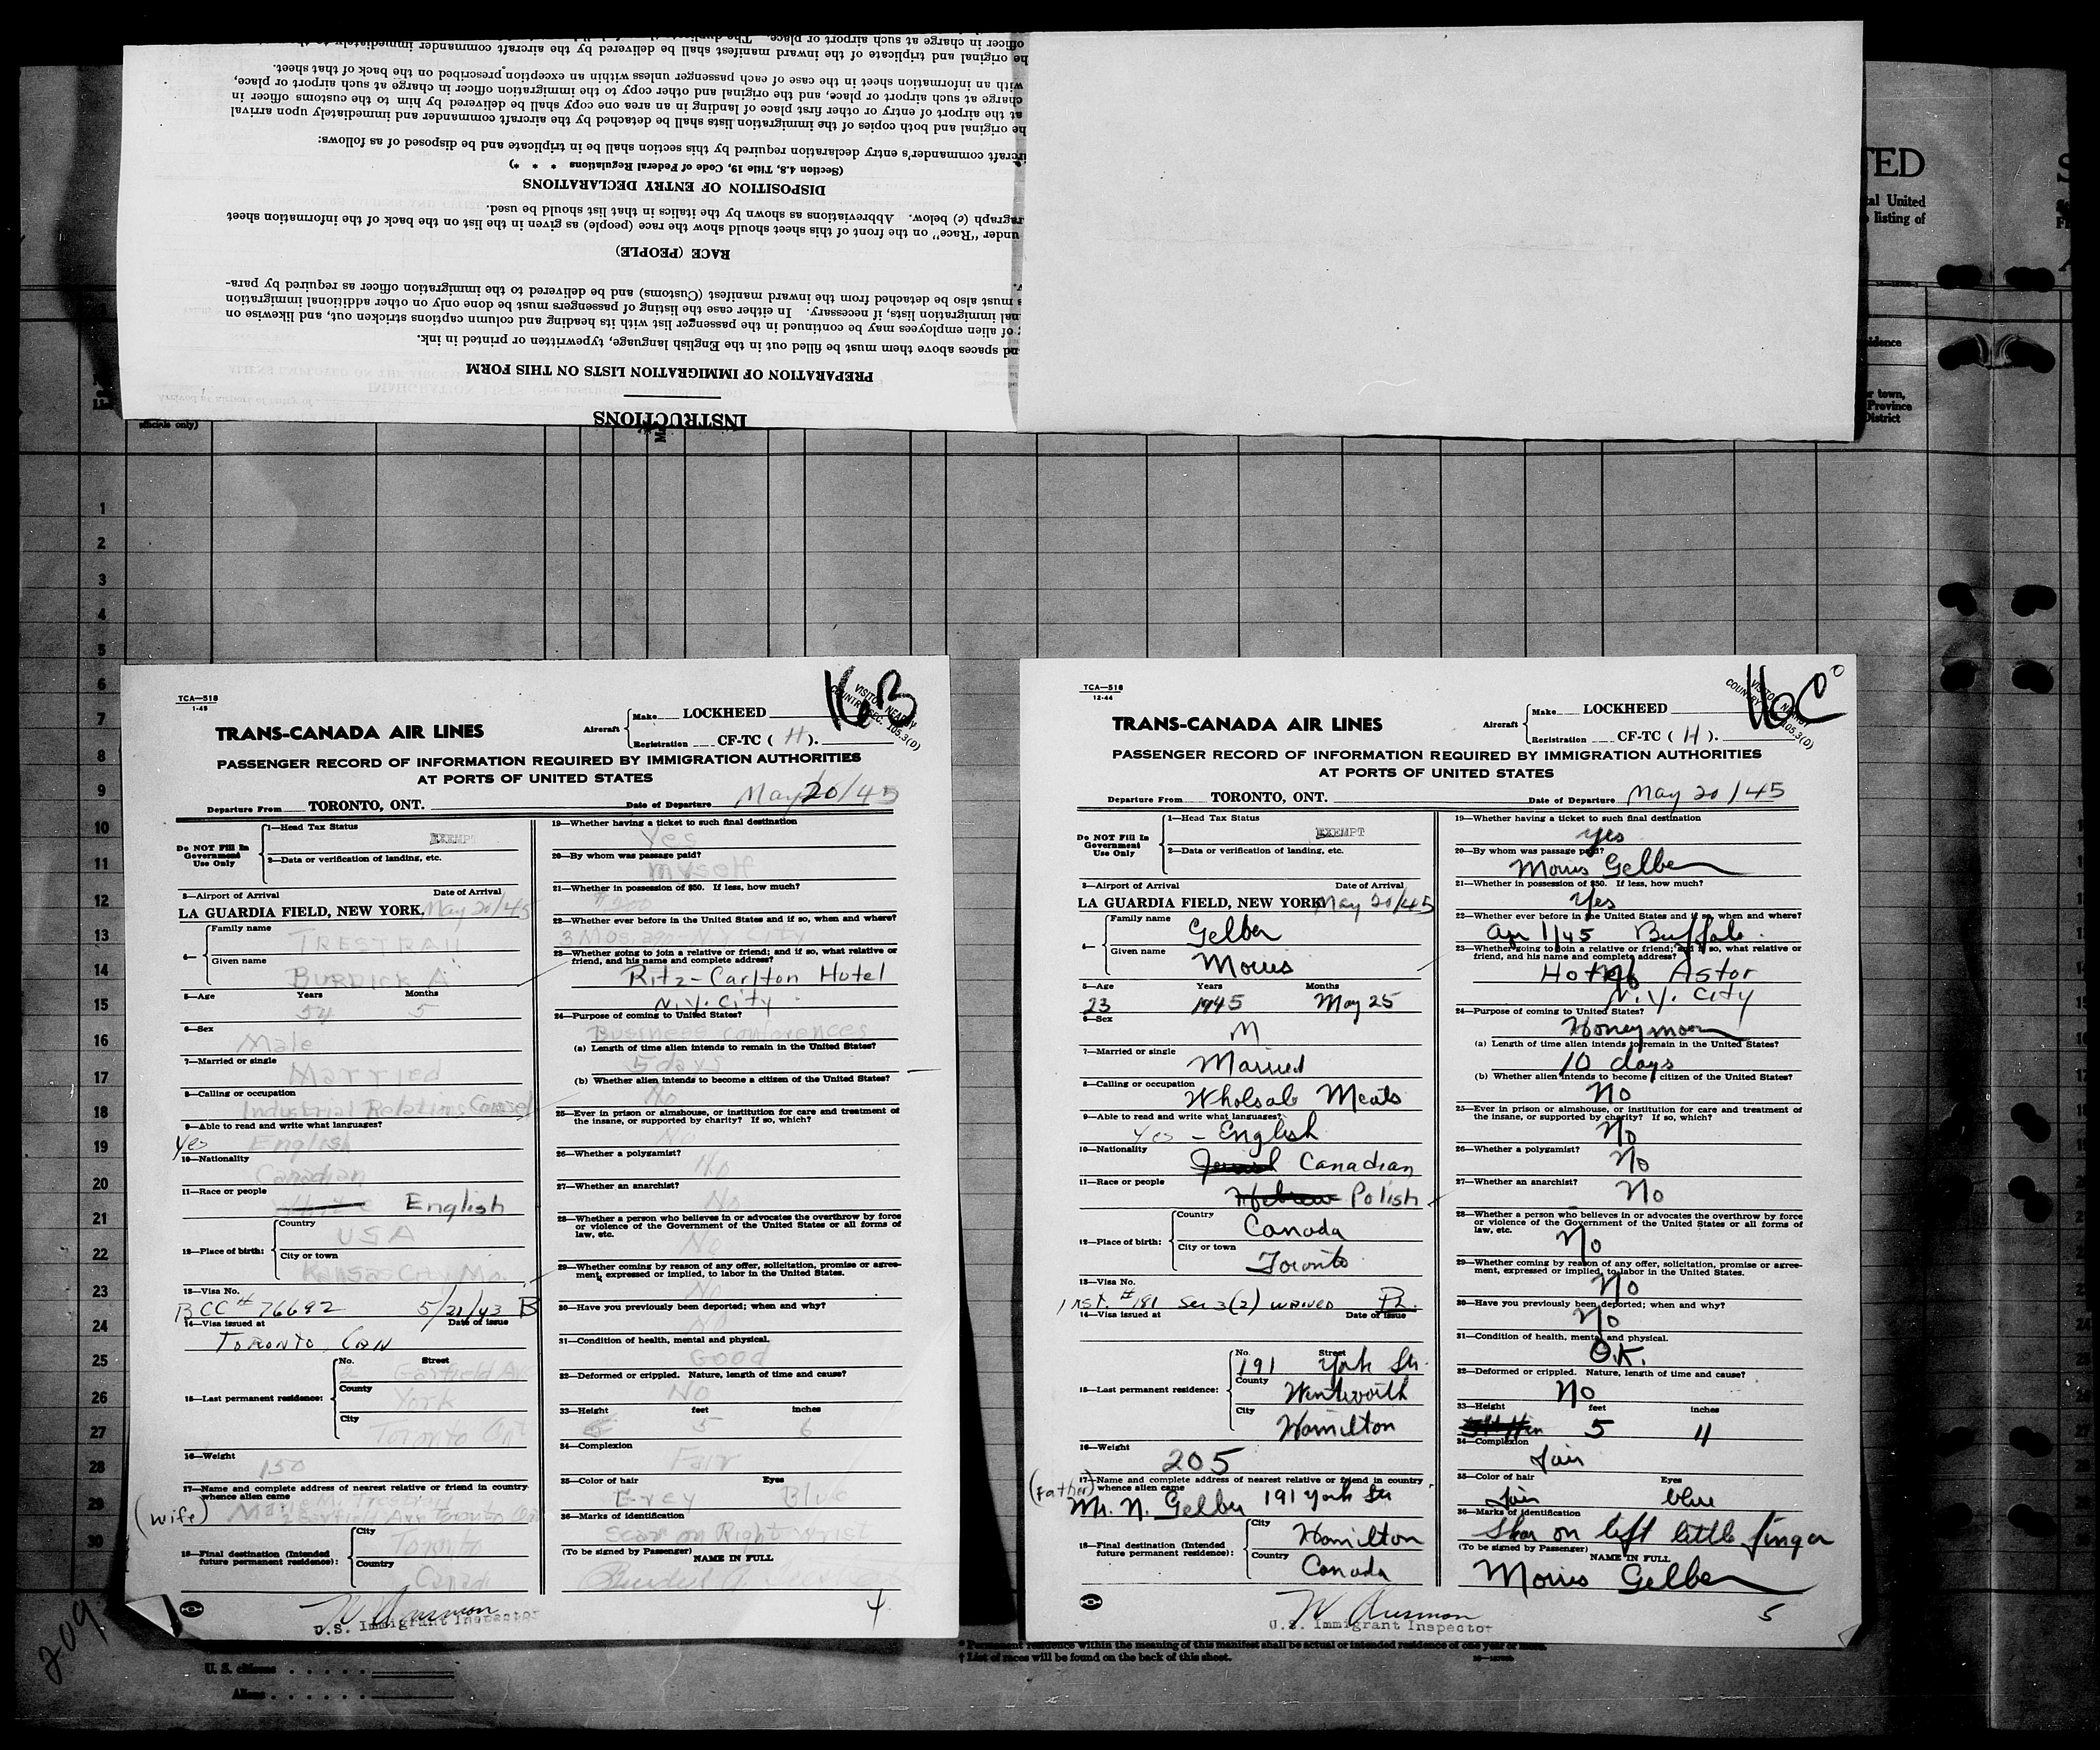 officer in charge at such airport or place.
he original and triplicate of the inward manifest shall be delivered by the aircraft commander immediately
with an information sheet in the case of each passenger unless within an exception prescribed on the back of that sheet.
charge at such airport or place, and the original and other copy to the immigration officer in charge at such airport or place,
at the airport of entry or other first place of landing in an area one copy shall be delivered by him to the customs officer in
he original and both copies of the immigration lists shall be detached by the aircraft commander and immediately upon arrival
ircraft commander's entry declaration required by this section shall be in triplicate and be disposed of as follows:
(Section 4.8, Title 19, Code of Federal Regulations * * *)
DISPOSITION OF ENTRY DECLARATIONS
ragraph (c) below. Abbreviations as shown by the italics in that list should be used.
under "Race" on the front of this sheet should show the race (people) as given in the list on the back of the information sheet
RACE (PEOPLE)
s must also be detached from the inward manifest (Customs) and be delivered to the immigration officer as required by para-
nal immigration lists, if necessary. In either case the listing of passengers must be done only on other additional immigration
of alien employees may be continued in the passenger list with its heading and column captions stricken out, and likewise on
nd spaces above them must be filled out in the English language, typewritten or printed in ink.
PREPARATION OF IMMIGRATION LISTS ON THIS FORM
INSTRUCTIONS
TED
al United
listing of
idence
r town,
Province
District
officials only)
1
2
3
4
5
6
7
8
9
10
11
12
13
14
15
16
17
18
19
20
21
22
23
24
25
26
27
28
29
30
TCA—518
1-45
16B
VISITOR NEARBY
COUNTRY SEC. 105.3(D)
TRANS-CANADA AIR LINES
Aircraft Make LOCKHEED
Registration CF-TC ( H ).
PASSENGER RECORD OF INFORMATION REQUIRED BY IMMIGRATION AUTHORITIES
AT PORTS OF UNITED STATES
Departure From TORONTO, ONT. Date of Departure May 20/45
Do NOT Fill In Government Use Only
1—Head Tax Status EXEMPT
2—Data or verification of landing, etc.
3—Airport of Arrival Date of Arrival
LA GUARDIA FIELD, NEW YORK. May 20/45
4— Family name TRESTRAIL
Given name BURDICK A
5—Age Years Months
54 5
6—Sex
Male
7—Married or single
Married
8—Calling or occupation
Industrial Relations Counsel
9—Able to read and write what languages?
yes English
10—Nationality
Canadian
11—Race or people
English
12—Place of birth: Country USA
City or town Kansas City Mo.
13—Visa No.
BCC # 76692 5/21/43 B
14—Visa issued at Date of issue
TORONTO CAN
15—Last permanent residence: No. Street
2 Garfield Av
County York
City Toronto Ont
16—Weight
150
17—Name and complete address of nearest relative or friend in country whence alien came
(wife) M. Trestrail
2 Garfield Ave Toronto
18—Final destination (Intended future permanent residence): City Toronto
Country Canada
U.S. Immigrant Inspector
19—Whether having a ticket to such final destination
Yes
20—By whom was passage paid?
myself
21—Whether in possession of $50. If less, how much?
$200
22—Whether ever before in the United States and if so, when and where?
3 Mos. ago N.Y. City
23—Whether going to join a relative or friend; and if so, what relative or friend, and his name and complete address?
Ritz-Carlton Hotel
N.Y. City
24—Purpose of coming to United States?
Business Conferences
(a) Length of time alien intends to remain in the United States?
5 days
(b) Whether alien intends to become a citizen of the United States?
No
25—Ever in prison or almshouse, or institution for care and treatment of the insane, or supported by charity? If so, which?
No
26—Whether a polygamist?
No
27—Whether an anarchist?
No
28—Whether a person who believes in or advocates the overthrow by force or violence of the Government of the United States or all forms of law, etc.
No
29—Whether coming by reason of any offer, solicitation, promise or agreement, expressed or implied, to labor in the United States.
No
30—Have you previously been deported; when and why?
No
31—Condition of health, mental and physical.
Good
32—Deformed or crippled. Nature, length of time and cause?
No
33—Height feet inches
5 6
34—Complexion
Fair
35—Color of hair Eyes
Grey Blue
36—Marks of identification
Scar on Right wrist
(To be signed by Passenger) NAME IN FULL
4
TCA—518
12-44
16C
VISITOR NEARBY
COUNTRY 105.3(D)
TRANS-CANADA AIR LINES
Aircraft Make LOCKHEED
Registration CF-TC ( H ).
PASSENGER RECORD OF INFORMATION REQUIRED BY IMMIGRATION AUTHORITIES
AT PORTS OF UNITED STATES
Departure From TORONTO, ONT. Date of Departure May 20/45
Do NOT Fill In Government Use Only
1—Head Tax Status EXEMPT
2—Data or verification of landing, etc.
3—Airport of Arrival Date of Arrival
LA GUARDIA FIELD, NEW YORK May 20/45
4— Family name Gelber
Given name Morris
5—Age Years Months
23 1945 May 25
6—Sex
M
7—Married or single
Married
8—Calling or occupation
Wholsale Meats
9—Able to read and write what languages?
Yes - English
10—Nationality
Jewish Canadian
11—Race or people
Hebrew Polish
12—Place of birth: Country Canada
City or town Toronto
13—Visa No.
INST. # 181 Sec 3(2) waived
14—Visa issued at Date of issue
15—Last permanent residence: No. Street
191 York St.
County Wentworth
City Hamilton
16—Weight
205
17—Name and complete address of nearest relative or friend in country whence alien came
(Father) Mr. N. Gelber 191 York St
18—Final destination (Intended future permanent residence): City Hamilton
Country Canada
U.S. Immigrant Inspector
19—Whether having a ticket to such final destination
yes
20—By whom was passage paid?
Morris Gelber
21—Whether in possession of $50. If less, how much?
Yes
22—Whether ever before in the United States and if so, when and where?
Apr 1/45 Buffalo.
23—Whether going to join a relative or friend; and if so, what relative or friend, and his name and complete address?
Hotel Astor
N.Y. City
24—Purpose of coming to United States?
Honeymoon
(a) Length of time alien intends to remain in the United States?
10 days
(b) Whether alien intends to become a citizen of the United States?
No
25—Ever in prison or almshouse, or institution for care and treatment of the insane, or supported by charity? If so, which?
No
26—Whether a polygamist?
No
27—Whether an anarchist?
No
28—Whether a person who believes in or advocates the overthrow by force or violence of the Government of the United States or all forms of law, etc.
No
29—Whether coming by reason of any offer, solicitation, promise or agreement, expressed or implied, to labor in the United States.
No
30—Have you previously been deported; when and why?
No
31—Condition of health, mental and physical.
O.K.
32—Deformed or crippled. Nature, length of time and cause?
No
33—Height feet inches
5 11
34—Complexion
fair
35—Color of hair Eyes
fair blue
36—Marks of identification
Skar on left little finger
(To be signed by Passenger) NAME IN FULL
Morris Gelber
5
209
* Permanent residence within the meaning of this manifest shall be actual or intended residence of one year or more.
† List of races will be found on the back of this sheet.
U. S. citizens
Aliens